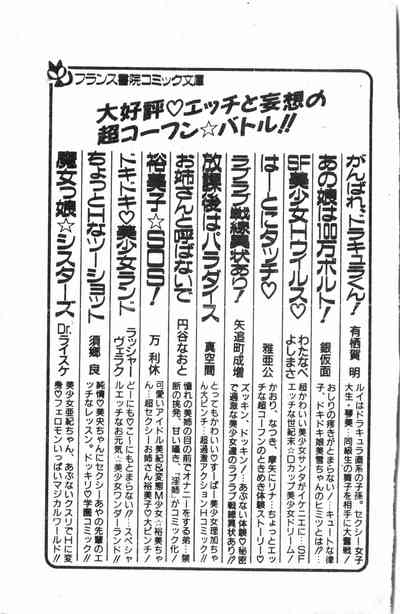 フランス書院コミック文庫
大好評♡エッチと妄想の
超コーフン☆バトル!!
がんばれ、ドラキュラくん! 有栖賀 明
ルイはドラキュラ直系の子孫。セクシー女子
大生・琴美、同級生の舞子を相手に大奮戦!
あの娘は100万ボルト! 銀仮面
おしりの疼きがとまらない!キュートな律
子、ドキドキ娘美雪ちゃんのヒミツとは!?…
SF美少女Hウイルス♡ わたなべよしまさ
超かわいい美少女サンタがイケニエに…SF
エッチな世紀末☆Dカップ美少女ドリーム!
はーとにタッチ♡ 雅亜公
かおり、なつき、摩矢にリナ…ちょっとエッ
チな超コーフンのときめき体験ストーリー♡
ラブラブ戦線異状あり! 矢追町成増
ズッキン、ドッキン!…あぶない体験♡秘密
で過激な美少女達のラブラブ戦線異状あり!?
放課後はパラダイス 真空間
とってもかわいい♡すーぱー美少女理加ちゃ
ん大ピンチ!超過激アクションHコミック!!
お姉さんと呼ばないで 円谷なおと
憧れの美姉の目の前でオナニーをする弟…禁
断の挑発。甘い囁き。「淫姉」がコミック化!
裕美子☆SOS! 万 利休
可愛いアイドル美紀&変態M少女☆裕美ちゃ
ん!超セクシーお姉さん裕美子♡大ピンチ!
ドキドキ♡美少女ランド ラッシャーヴェラク
どーにも♡こーにもとまらない!?…スペシャ
ルエッチなお元気☆美少女ワンダーランド!!
ちょっとHなツーショット 須郷 良
純情♡美央ちゃんにセクシーあやの先輩のエ
ッチなレッスン。ドッキリ♡学園コミック!
魔女っ娘☆シスターズ Dr.ライスケ
美少女亜紀ちゃん、あぶないクスリでHに変
身♡フェロモンいっぱいマジカルワールド!!